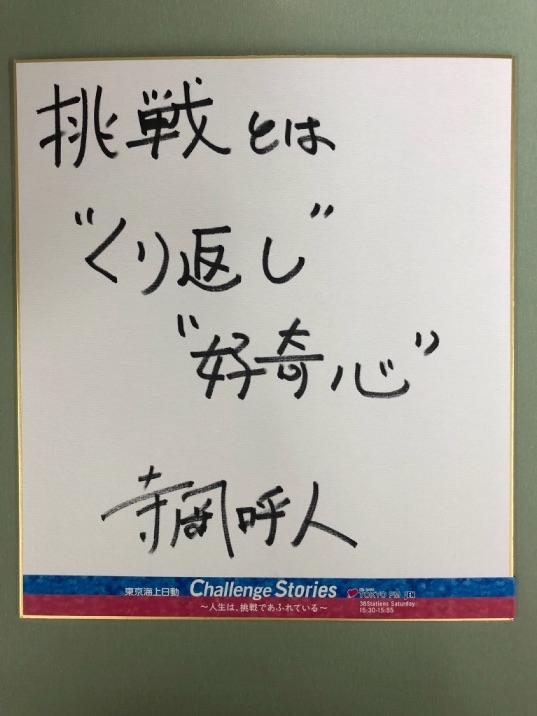 挑戦とは
"くり返し"
"好奇心"
寺岡呼人
東京海上日動 Challenge Stories
～人生は、挑戦であふれている～
TOKYO FM
38Stations Saturday
15:30-15:55